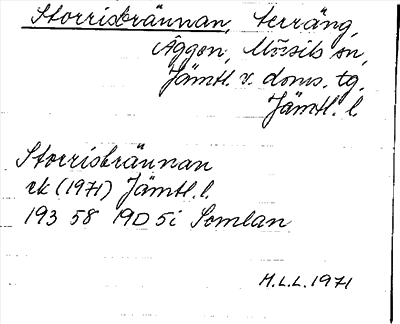 Storrisbrännan, terräng,
Äggen, Mörsils sn,
Jämtl. v. doms. tg.
Jämtl. l.
Storrisbrännan
rk (1971) Jämtl. l.
193 58 19D 5i Somlan
H.L.L. 1971